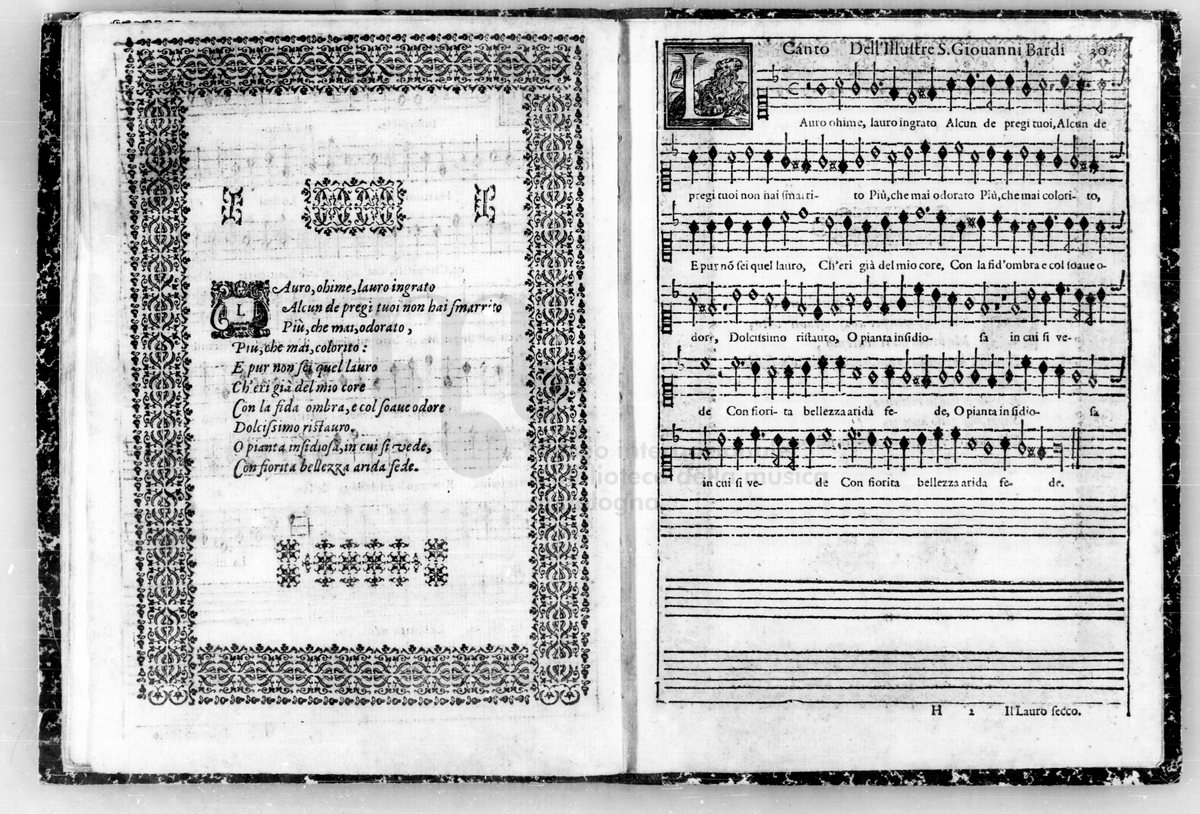 LAuro, ohime, lauro ingrato
Alcun de pregi tuoi non hai smarrito
Più, che mai, odorato,
Più, che mai, colorito:
E pur non sei quel lauro
Ch'eri già del mio core
Con la fida ombra, e col soaue odore
Dolcissimo ristauro.
O pianta insidiosa, in cui si vede,
Con fiorita bellezza arida fede.
Canto Dell'Illustre S. Giouanni Bardi 30
LAuro ohime, lauro ingrato Alcun de pregi tuoi, Alcun de
pregi tuoi non hai smarri- to Più, che mai odorato Più, che mai colori- to,
E pur nõ sei quel lauro, Ch'eri già del mio core, Con la fid'ombra e col soaue o-
dore, Dolcissimo ristauro, O pianta insidio- sa in cui si ve-
de Con fiori- ta bellezza arida fe- de, O pianta insidio- sa
in cui si ve- de Con fiorita bellezza arida fe- de.
H 2 Il Lauro secco.